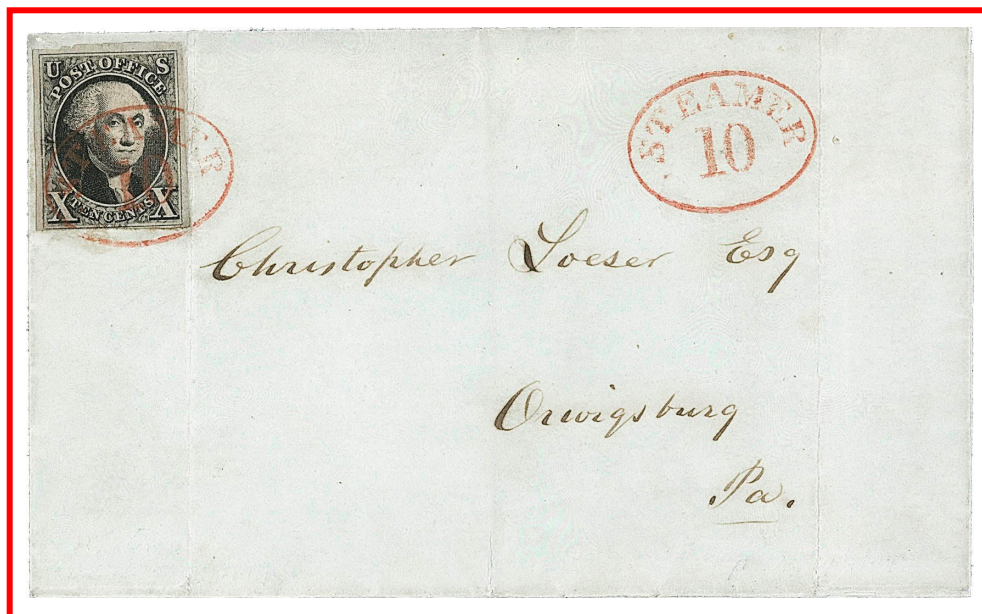 U S
POST OFFICE
X TEN CENTS X
STEAMER
10
Christopher Loeser Esq
Orwigsburg
Pa.